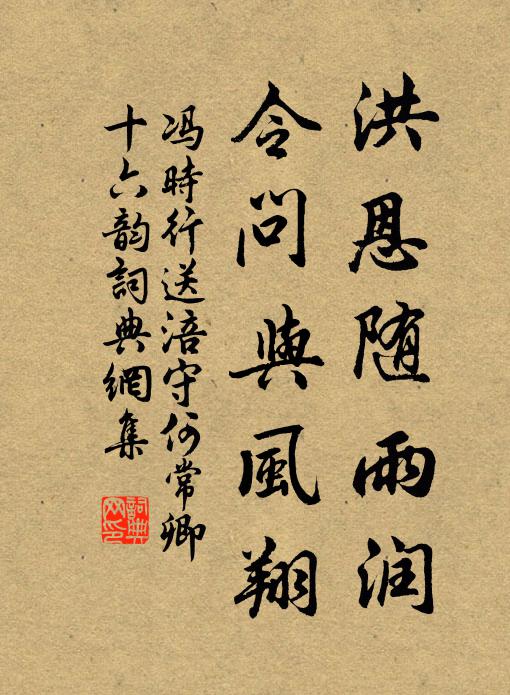 洪恩随雨润
令问與風翔
冯時行送涪守何常卿
十六韵詞典網集
詞典網印